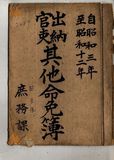 自昭和三年
至昭和十二年
出納
官吏
其他命免簿
庶務課